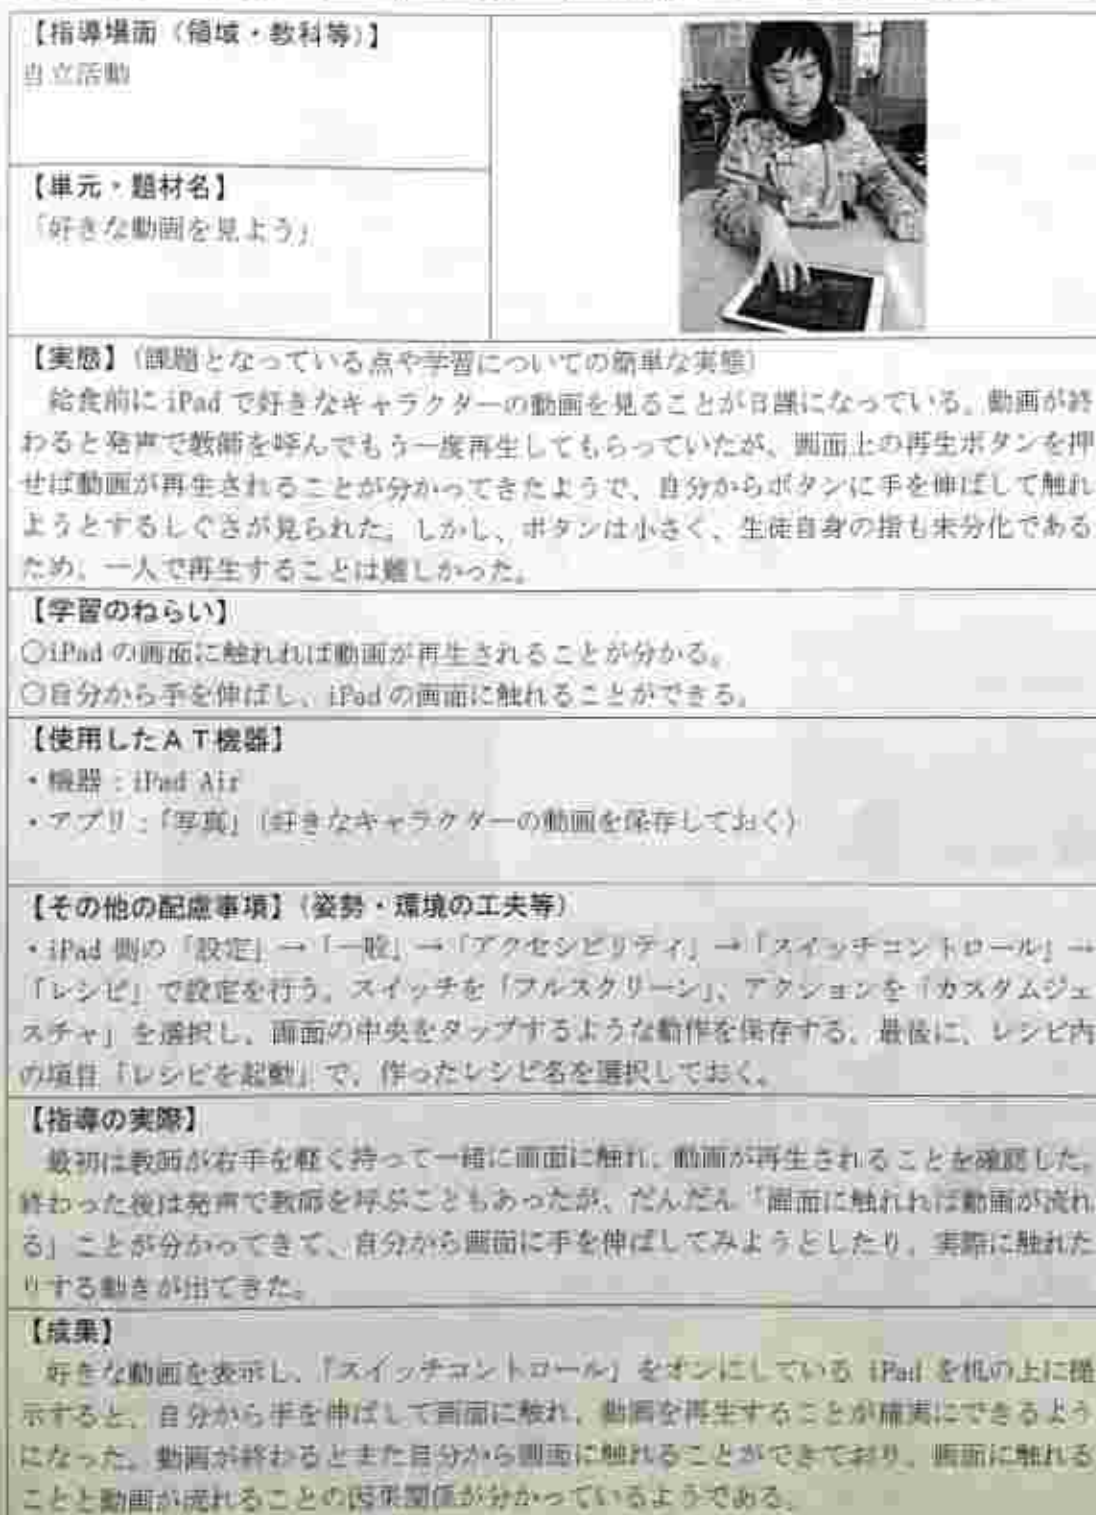 【指導場面(領域・教科等)】
自立活動
【単元・題材名】
「好きな動画を見よう」
【実態】(課題となっている点や学習についての簡単な実態)
給食前に iPad で好きなキャラクターの動画を見ることが日課になっている。動画が終
わると発声で教師を呼んでもう一度再生してもらっていたが、画面上の再生ボタンを押
せば動画が再生されることが分かってきたようで、自分からボタンに手を伸ばして触れ
ようとするしぐさが見られた。しかし、ボタンは小さく、生徒自身の指も未分化である
ため、一人で再生することは難しかった。
【学習のねらい】
○iPad の画面に触れれば動画が再生されることが分かる。
○自分から手を伸ばし、iPad の画面に触れることができる。
【使用したAT機器】
・機器:iPad Air
・アプリ:「写真」(好きなキャラクターの動画を保存しておく)
【その他の配慮事項】(姿勢・環境の工夫等)
・iPad 側の「設定」→「一般」→「アクセシビリティ」→「スイッチコントロール」→
「レシピ」で設定を行う。スイッチを「フルスクリーン」、アクションを「カスタムジェ
スチャ」を選択し、画面の中央をタップするような動作を保存する。最後に、レシピ内
の項目「レシピを起動」で、作ったレシピ名を選択しておく。
【指導の実際】
最初は教師が右手を軽く持って一緒に画面に触れ、動画が再生されることを確認した。
終わった後は発声で教師を呼ぶこともあったが、だんだん「画面に触れれば動画が流れ
る」ことが分かってきて、自分から画面に手を伸ばしてみようとしたり、実際に触れた
りする動きが出てきた。
【成果】
好きな動画を表示し、「スイッチコントロール」をオンにしている iPad を机の上に提
示すると、自分から手を伸ばして画面に触れ、動画を再生することが確実にできるよう
になった。動画が終わるとまた自分から画面に触れることができており、画面に触れる
ことと動画が流れることの因果関係が分かっているようである。